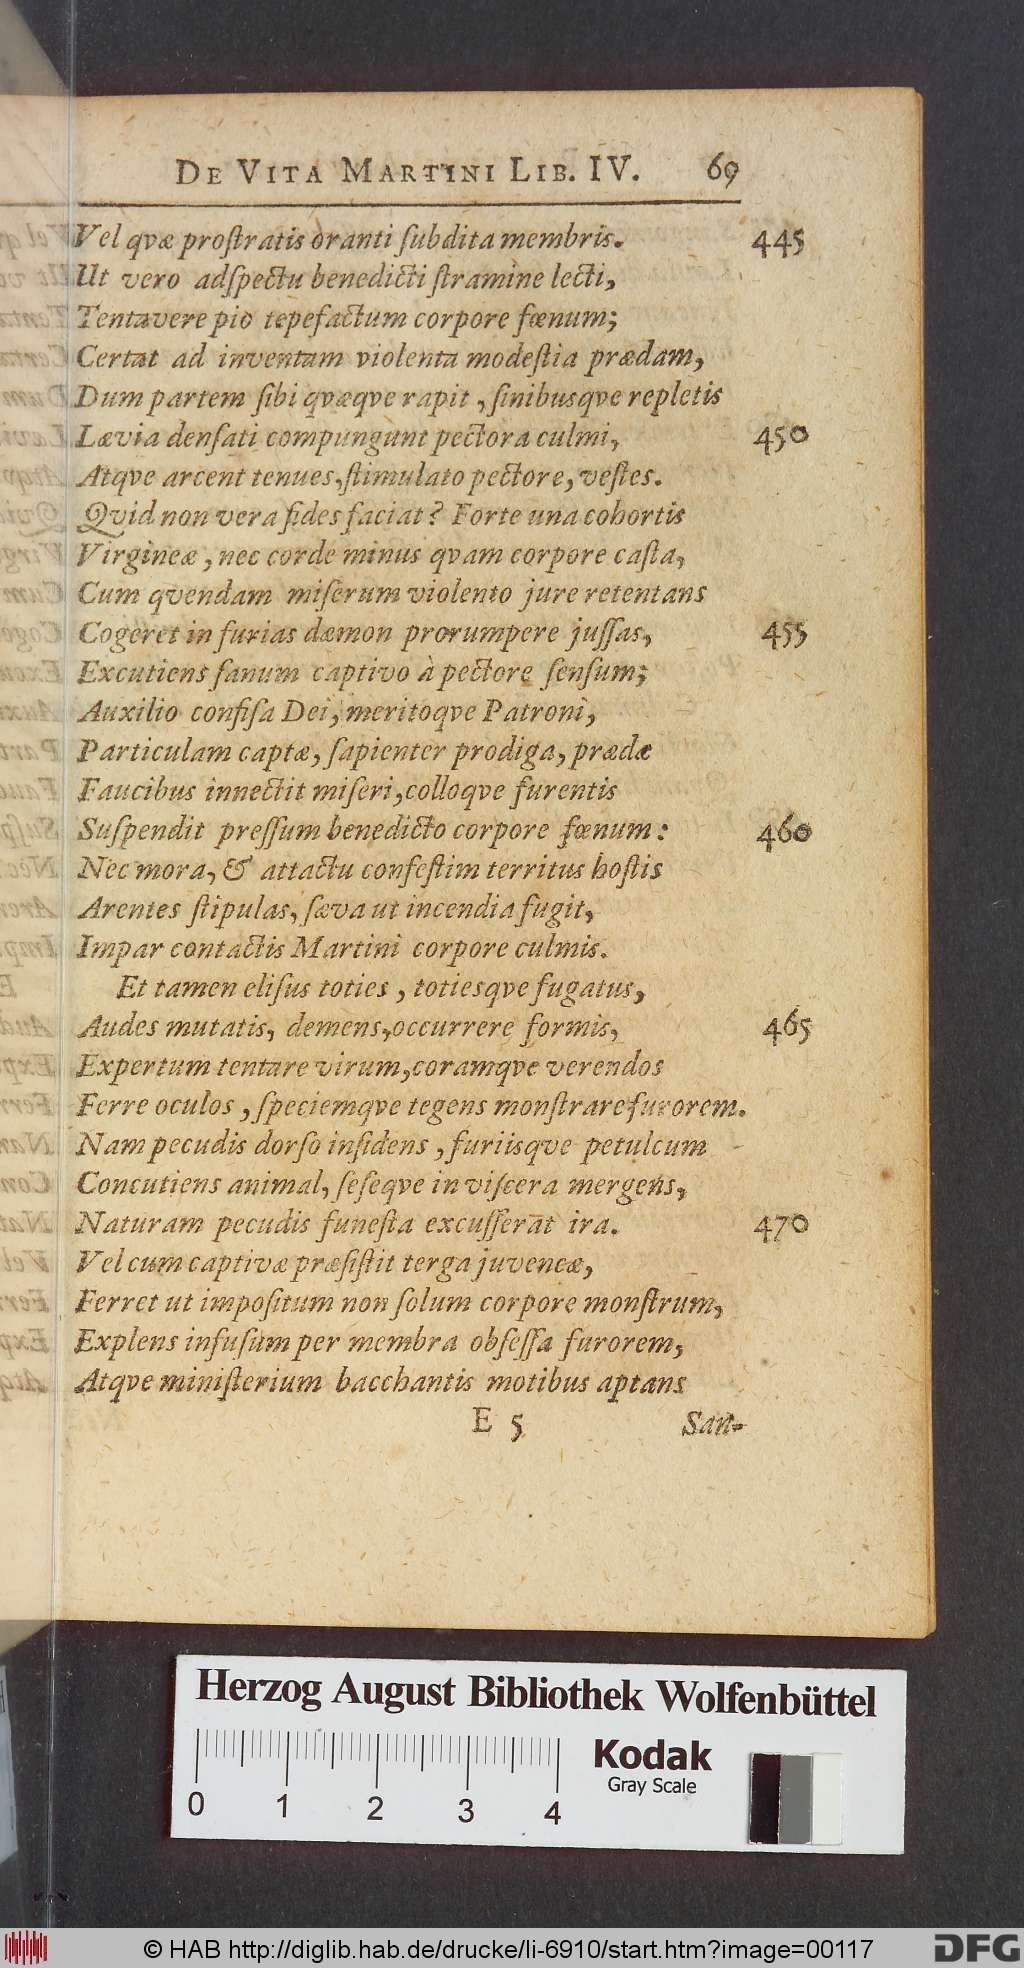 DE VITA MARTINI LIB. IV. 69
Vel qvæ proſtratis oranti ſubdita membris. 445
Ut vero adſpectu benedicti ſtramine lecti,
Tentavere pio tepefactum corpore fœnum;
Certat ad inventam violenta modeſtia prædam,
Dum partem ſibi qvæqve rapit, ſinibusqve repletis
Lævia denſati compungunt pectora culmi, 450
Atqve arcent tenues, ſtimulato pectore, veſtes.
Qvid non vera fides faciat? Forte una cohortis
Virgineæ, nec corde minus qvam corpore caſta,
Cum qvendam miſerum violento jure retentans
Cogeret in furias dæmon prorumpere juſſas, 455
Excutiens ſanum captivo à pectore ſenſum;
Auxilio confiſa Dei, meritoqve Patroni,
Particulam captæ, ſapienter prodiga, prædæ
Faucibus innectit miſeri, colloqve furentis
Suſpendit preſſum benedicto corpore fœnum: 460
Nec mora, & attactu confeſtim territus hoſtis
Arentes ſtipulas, ſæva ut incendia fugit,
Impar contactis Martini corpore culmis.
Et tamen eliſus toties, totiesqve fugatus,
Audes mutatis, demens, occurrere formis, 465
Expertum tentare virum, coramqve verendos
Ferre oculos, ſpeciemqve tegens monſtrare furorem.
Nam pecudis dorſo inſidens, furiisqve petulcum
Concutiens animal, ſeſeqve in viſcera mergens,
Naturam pecudis funeſta excuſſerat ira. 470
Vel cum captivæ præſiſtit terga juvencæ,
Ferret ut impoſitum non ſolum corpore monſtrum,
Explens infuſum per membra obſeſſa furorem,
Atqve miniſterium bacchantis motibus aptans
E 5 San-
Herzog August Bibliothek Wolfenbüttel
Kodak
Gray Scale
0 1 2 3 4
© HAB http://diglib.hab.de/drucke/li-6910/start.htm?image=00117
DFG